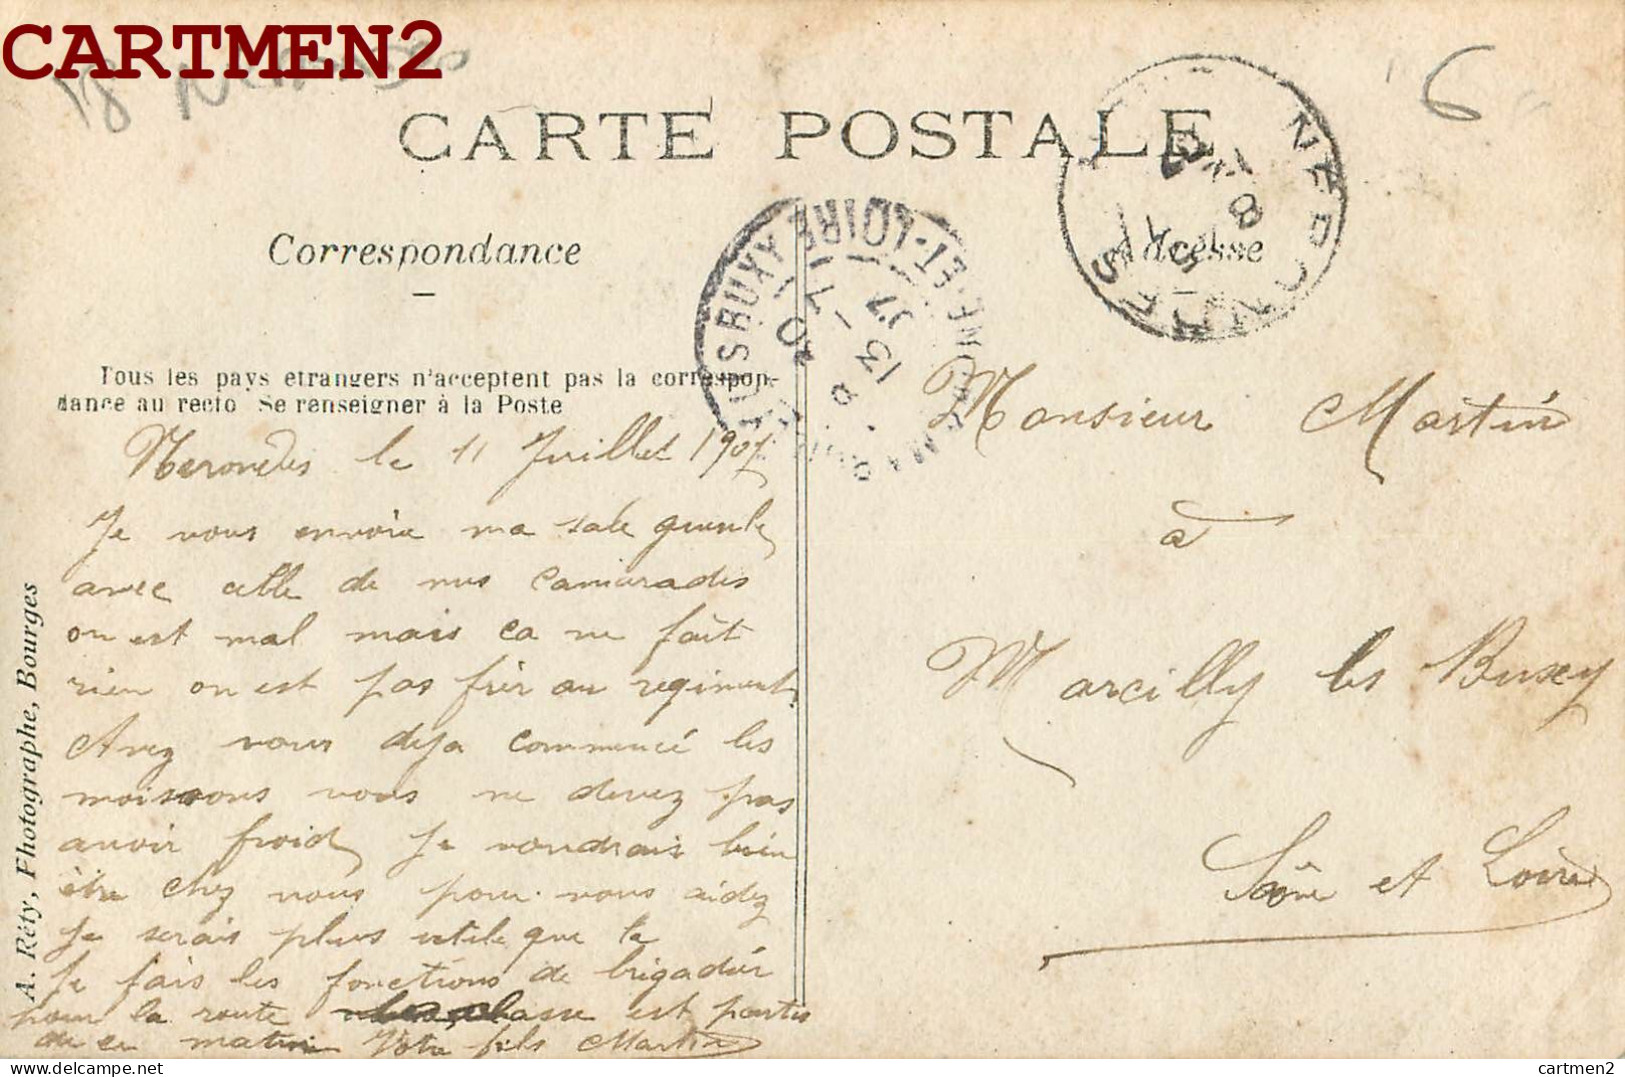 CARTMEN2
18 Nerondes
6
CARTE POSTALE
Correspondance
Adresse
Tous les pays etrangers n'acceptent pas la correspon-
dance au recto Se renseigner à la Poste
Nerondes le 11 Juillet 1907
Je vous envoie ma sale gueule
avec celle de mes camarades
on est mal mais ça ne fait
rien on est pas fier au regiment
Avez vous deja commencé les
moissons vous ne devez pas
avoir froid Je voudrais bien
être chez vous pour vous aidez
Je serais plus utile que la
Je fais les fonctions de brigadier
pour la route classe est partis
de ce matin Votre fils Martin
Monsieur Martin
à
Marcilly les Buxy
Saône et Loire
A. Réty, Fhotographe, Bourges
NERONDES
8
BUXY SAONE-ET-LOIRE
10
13 -7
07
cartmen2